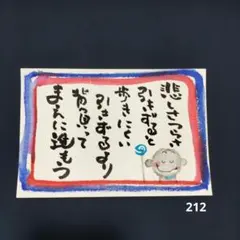 悲しさつらさ
引きずると
歩きにくい
引きずるより
背負って
まえに進もう
212